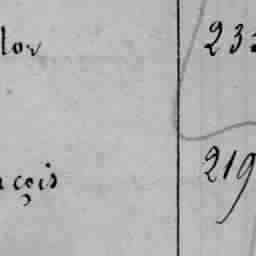 lov 23
nçois 219